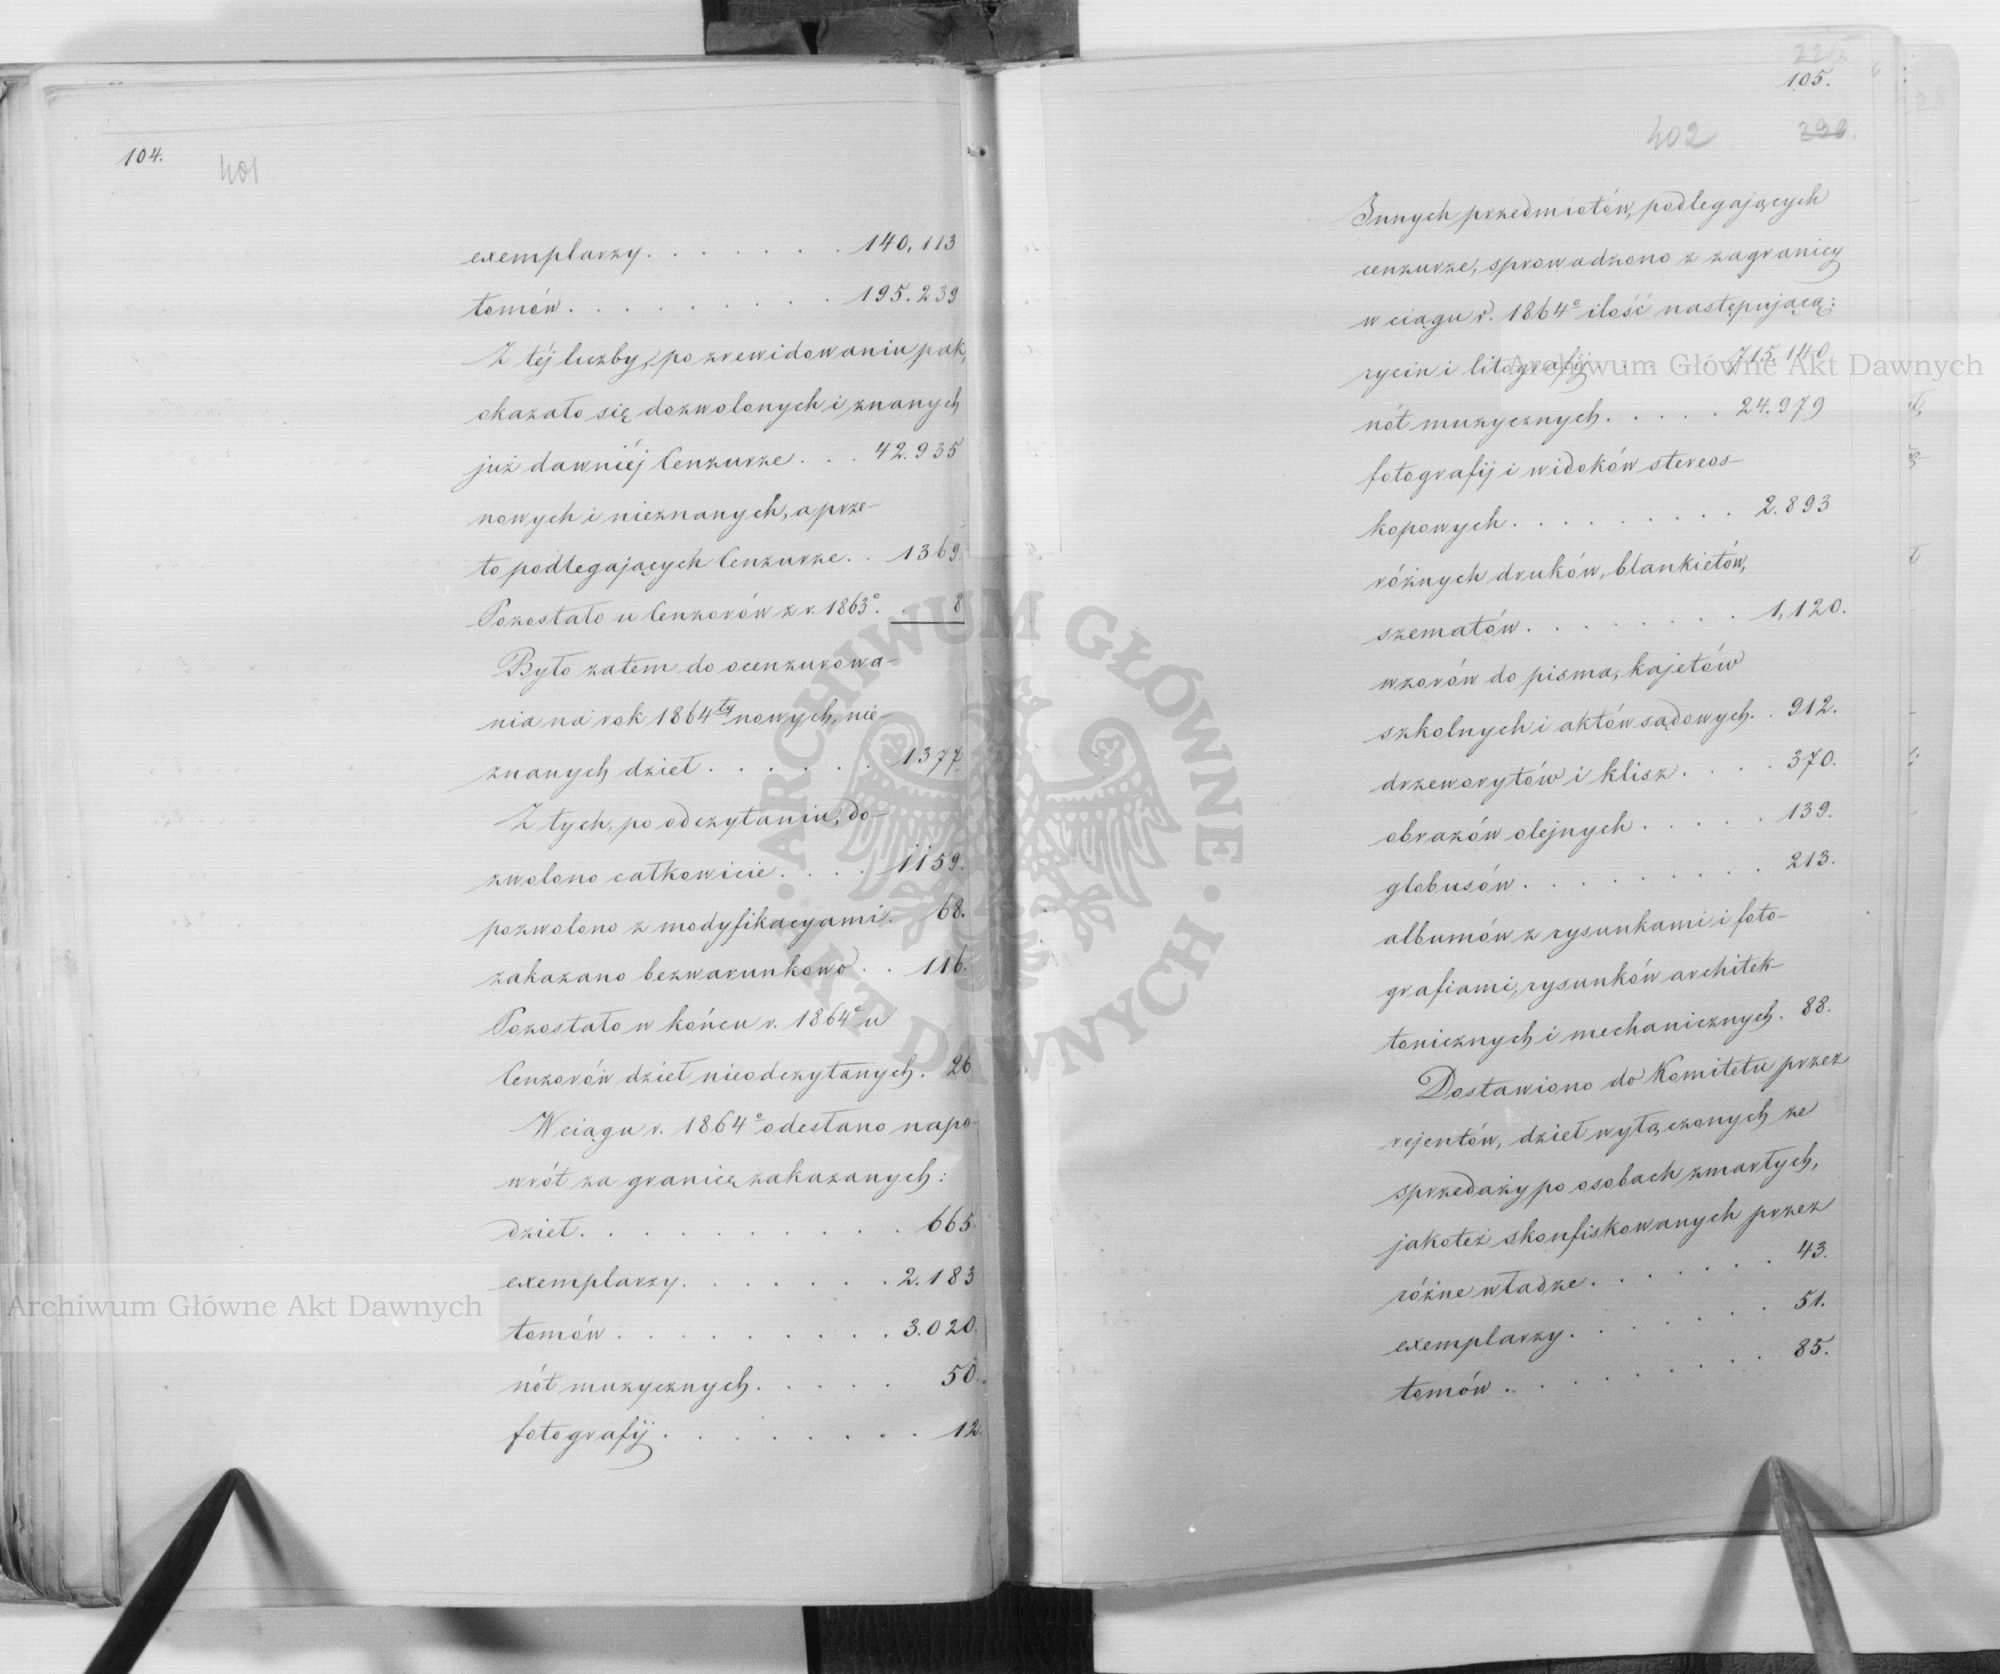 104.
401
exemplarzy . . . . . . . 140,113
tomów . . . . . . . . . 195.239
Z téj liczby, po zrewidowaniu pak,
okazało się dozwolonych i znanych
już dawniéj Cenzurze . . . 42.935
nowych i nieznanych, a prze-
to podlegających Cenzurze . . 1369.
Pozostało u Cenzorów z r. 1863º . . 8
Było zatem do ocenzurowa-
nia na rok 1864ty nowych, nie-
znanych dzieł . . . . . . 1377.
Z tych, po odczytaniu, do-
zwolono całkowicie . . . . 1159.
pozwolono z modyfikacyami . 68.
zakazano bezwarunkowo . . 116.
Pozostało w końcu r. 1864º u
Cenzorów dzieł nieodczytanych . 26
W ciągu r. 1864º odesłano napo-
wrót za granicę zakazanych :
dzieł . . . . . . . . . . 665.
exemplarzy . . . . . . . 2.183
tomów . . . . . . . . . 3.020.
nót muzycznych . . . . . 50.
fotografij . . . . . . . . 12.
225.
105.
402
Innych przedmiotów, podlegających
cenzurze, sprowadzono z zagranicy
w ciągu r. 1864º ilość następującą :
rycin i litografij . . . . 715.140
nót muzycznych . . . . . 24.979
fotografij i widoków stereos-
kopowych . . . . . . . . . 2.893
różnych druków, blankietów,
szematów . . . . . . . . 1,120.
wzorów do pisma, kajetów
szkolnych i aktów sądowych . . 912.
drzeworytów i klisz . . . . 370.
obrazów olejnych . . . . . 139.
globusów . . . . . . . . . 213.
albumów z rysunkami i foto-
grafiami, rysunków architek-
tonicznych i mechanicznych . 88.
Dostawiono do Komitetu przez
rejentów, dzieł wyłączonych ze
sprzedaży po osobach zmarłych,
jakoteż skonfiskowanych przez
różne władze . . . . . . . 43.
exemplarzy . . . . . . . 51.
tomów . . . . . . . . . 85.
Archiwum Główne Akt Dawnych
Archiwum Główne Akt Dawnych
ARCHIWUM GŁÓWNE · AKT DAWNYCH ·